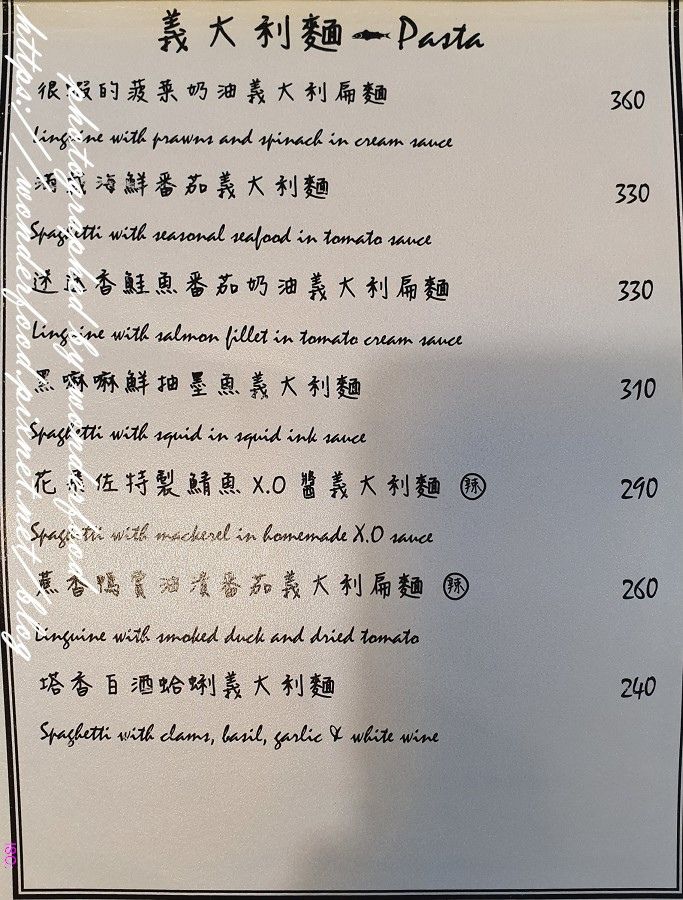 義大利麵 Pasta
很蝦的菠菜奶油義大利扁麵 360
Linguine with prawns and spinach in cream sauce
海鮮番茄義大利麵 330
Spaghetti with seasonal seafood in tomato sauce
迷迭香鮭魚番茄奶油義大利扁麵 330
Linguine with salmon fillet in tomato cream sauce
黑嘛嘛鮮抽墨魚義大利麵 310
Spaghetti with squid in squid ink sauce
佐特製鯖魚 X.O 醬義大利麵 辣 290
Spaghetti with mackerel in homemade X.O sauce
蔗香鴨賞油漬番茄義大利扁麵 辣 260
Linguine with smoked duck and dried tomato
塔香白酒蛤蜊義大利麵 240
Spaghetti with clams, basil, garlic & white wine
photographed by wonderfood
https://wonderfood.pixnet.net/blog